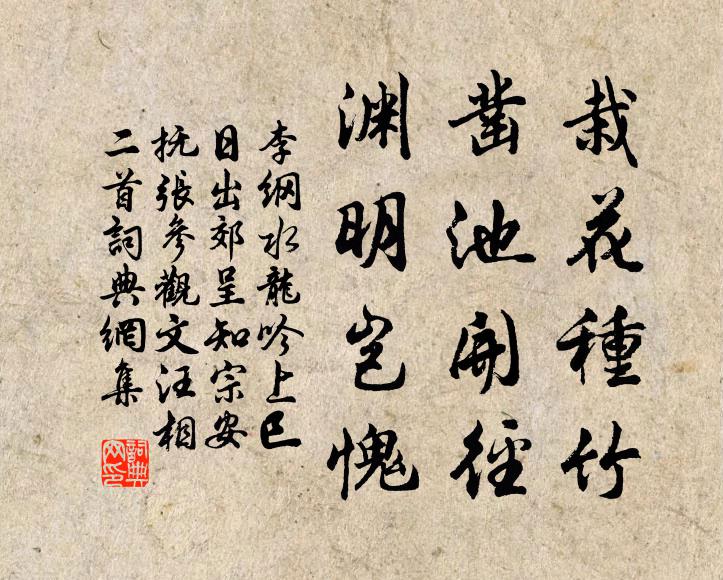 栽花種竹
鑿池開徑
淵明豈愧
李綱水龍吟上巳
日出郊呈知宗安
撫張參觀文汪相
二首詞典網集
詞典網印